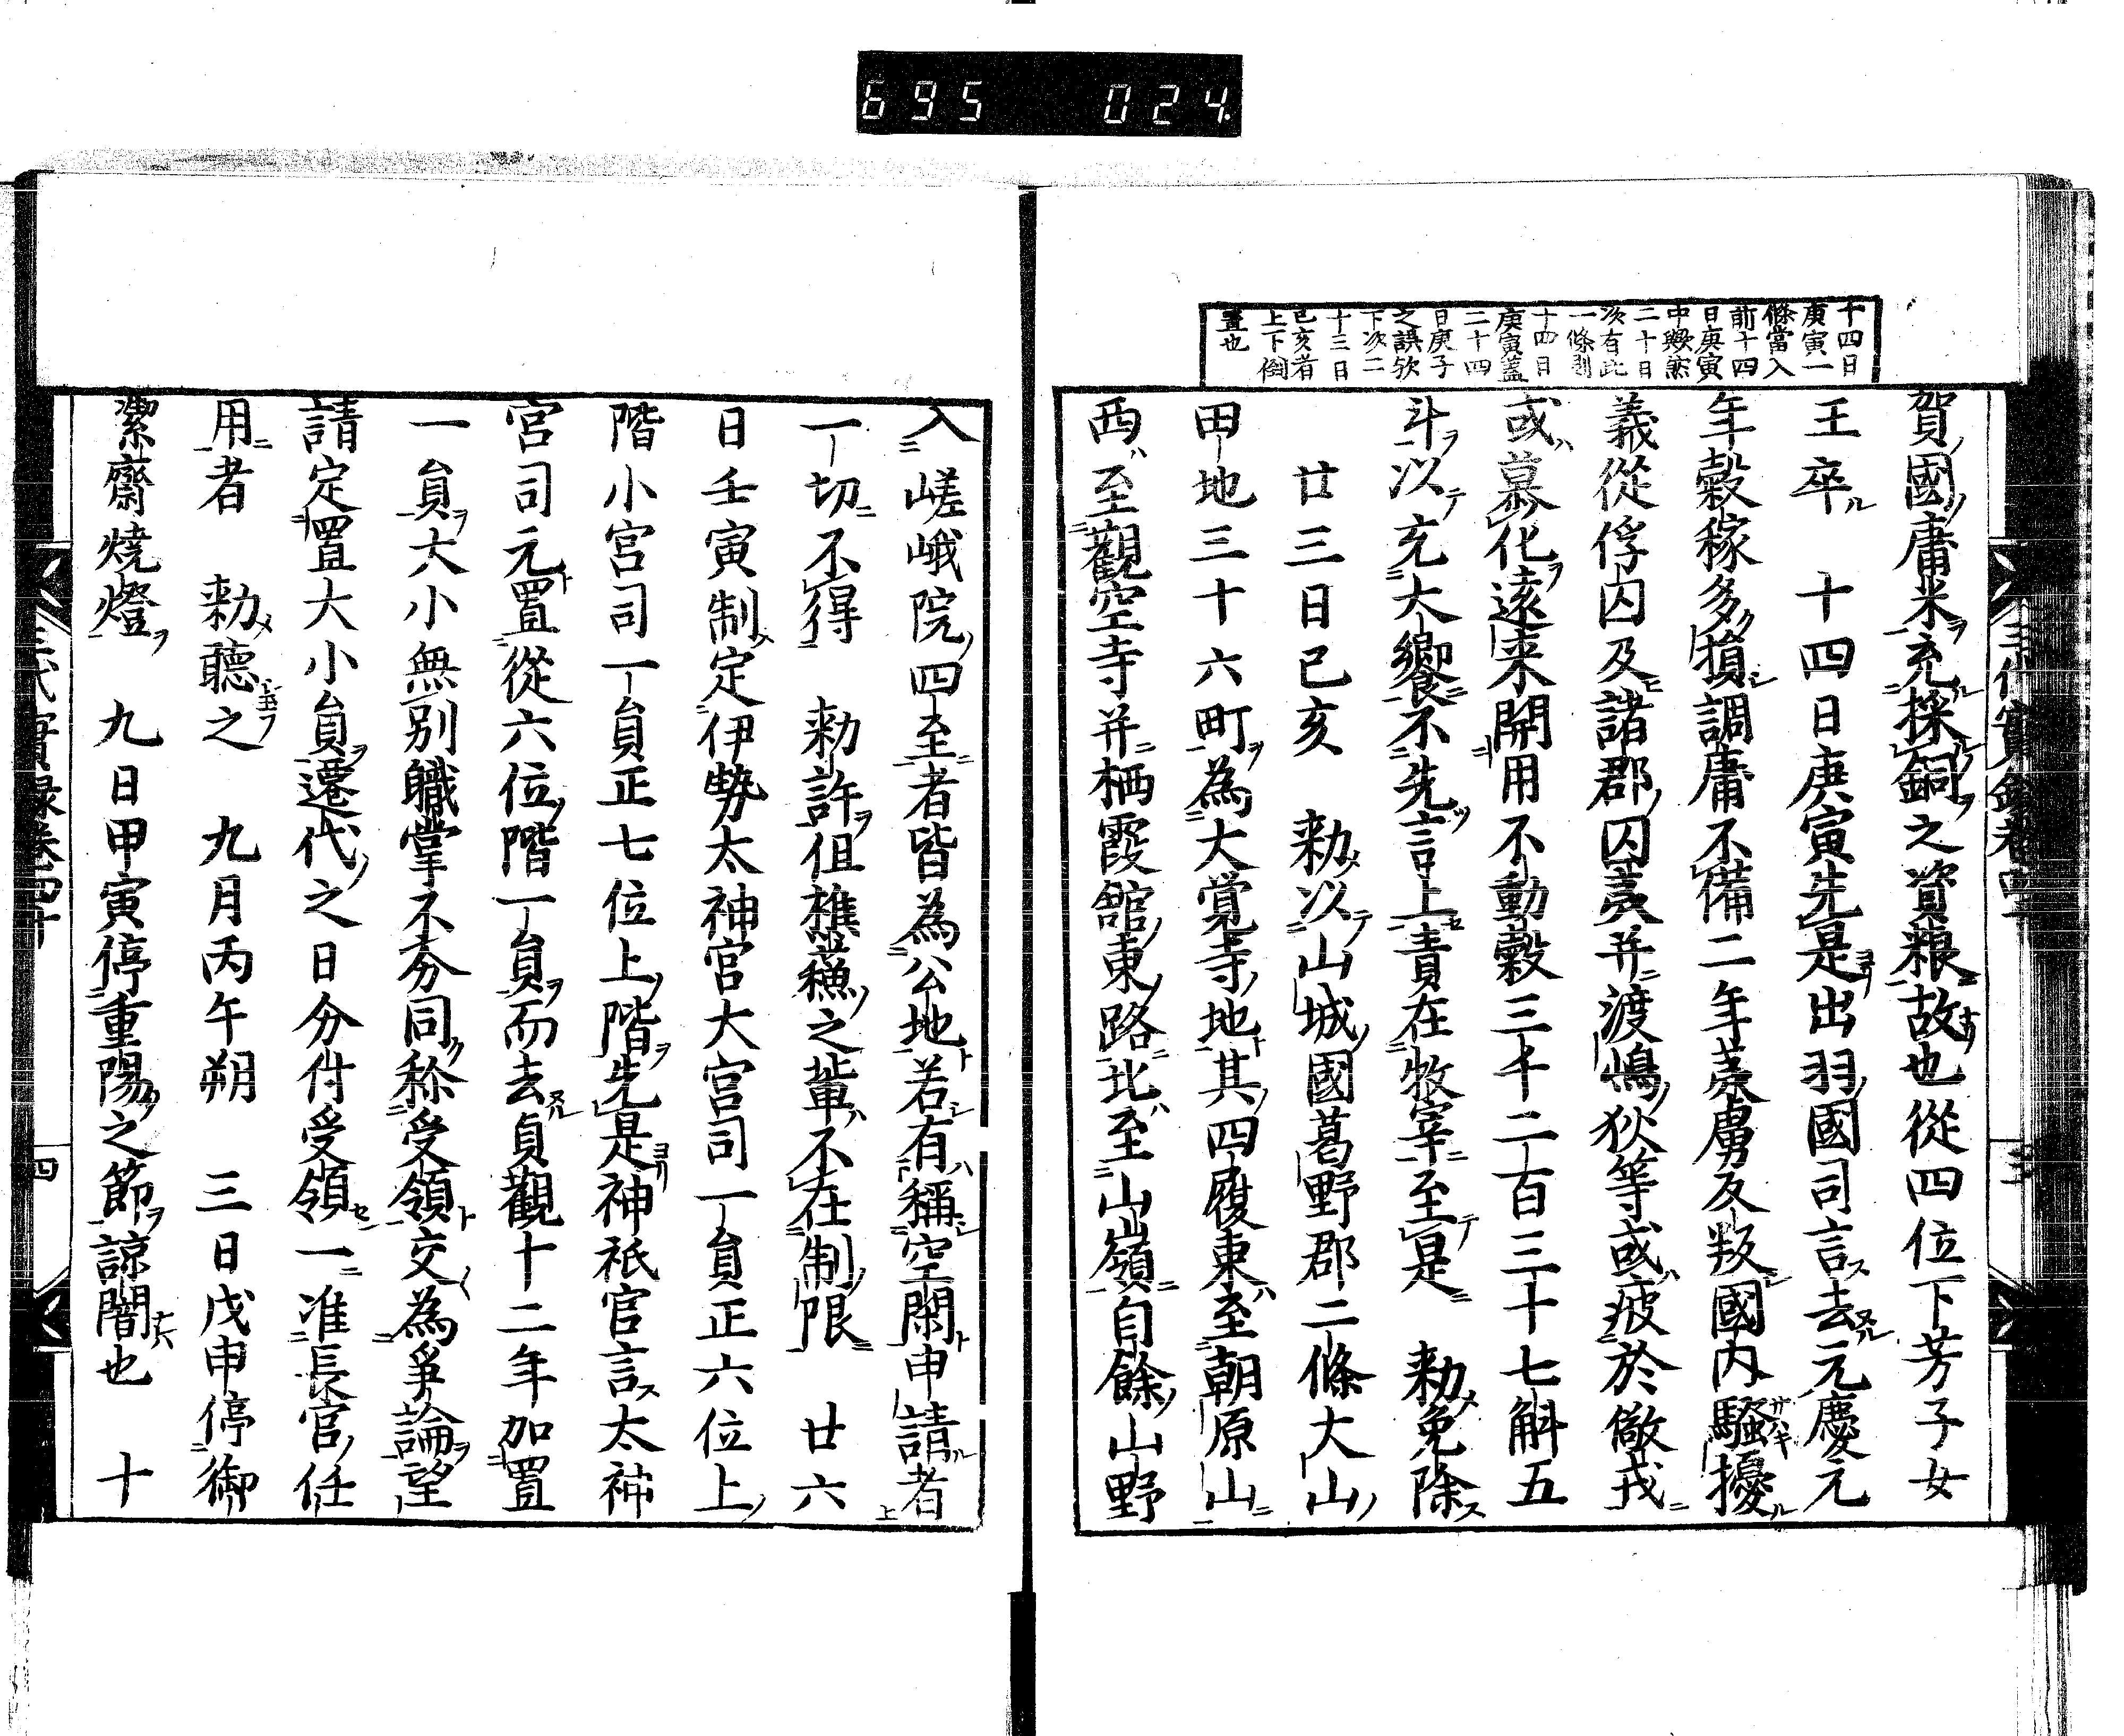 695 024.
十四日
庚寅一
條當入
前十四
日庚寅
中歟
二十日
次有此
一條
十四日
庚寅蓋
二十四
日庚子
之誤欤
下次二
十三日
己亥者
上下倒
置也
賀國庸米充採銅之資粮故也從四位下芳子女
王卒 十四日庚寅先是出羽國司言去元慶元
年穀稼多損調庸不備二年蝦虜反叛國內騷擾
義從俘囚及諸郡囚夷并渡嶋狄等或疲於儆戎
或慕化遠来開用不動穀三千二百三十七斛五
斗以充大饗不先言上責在牧宰至是 勅免除
廿三日己亥 勅以山城國葛野郡二條大山
田地三十六町為大覚寺地其四履東至朝原山
西至觀空寺并栖霞舘東路北至山嶺自餘山野
入嵯峨院四至者皆為公地若有稱空閑申請者
一切不得 勅許但樵蘇之輩不在制限 廿六
日壬寅制定伊勢太神宮大宮司一員正六位上
階小宮司一員正七位上階先是神祇官言太神
宮司元置從六位階一員而去貞觀十二年加置
一員大小無別職掌不夯同称受領交為爭論望
請定置大小員遷代之日分付受領一准長官任
用者 勅聽之 九月丙午朔 三日戊申停御
潔齋焼燈 九日甲寅停重陽之節諒闇也 十
三代實録卷四十
三
三代實録卷四十
四